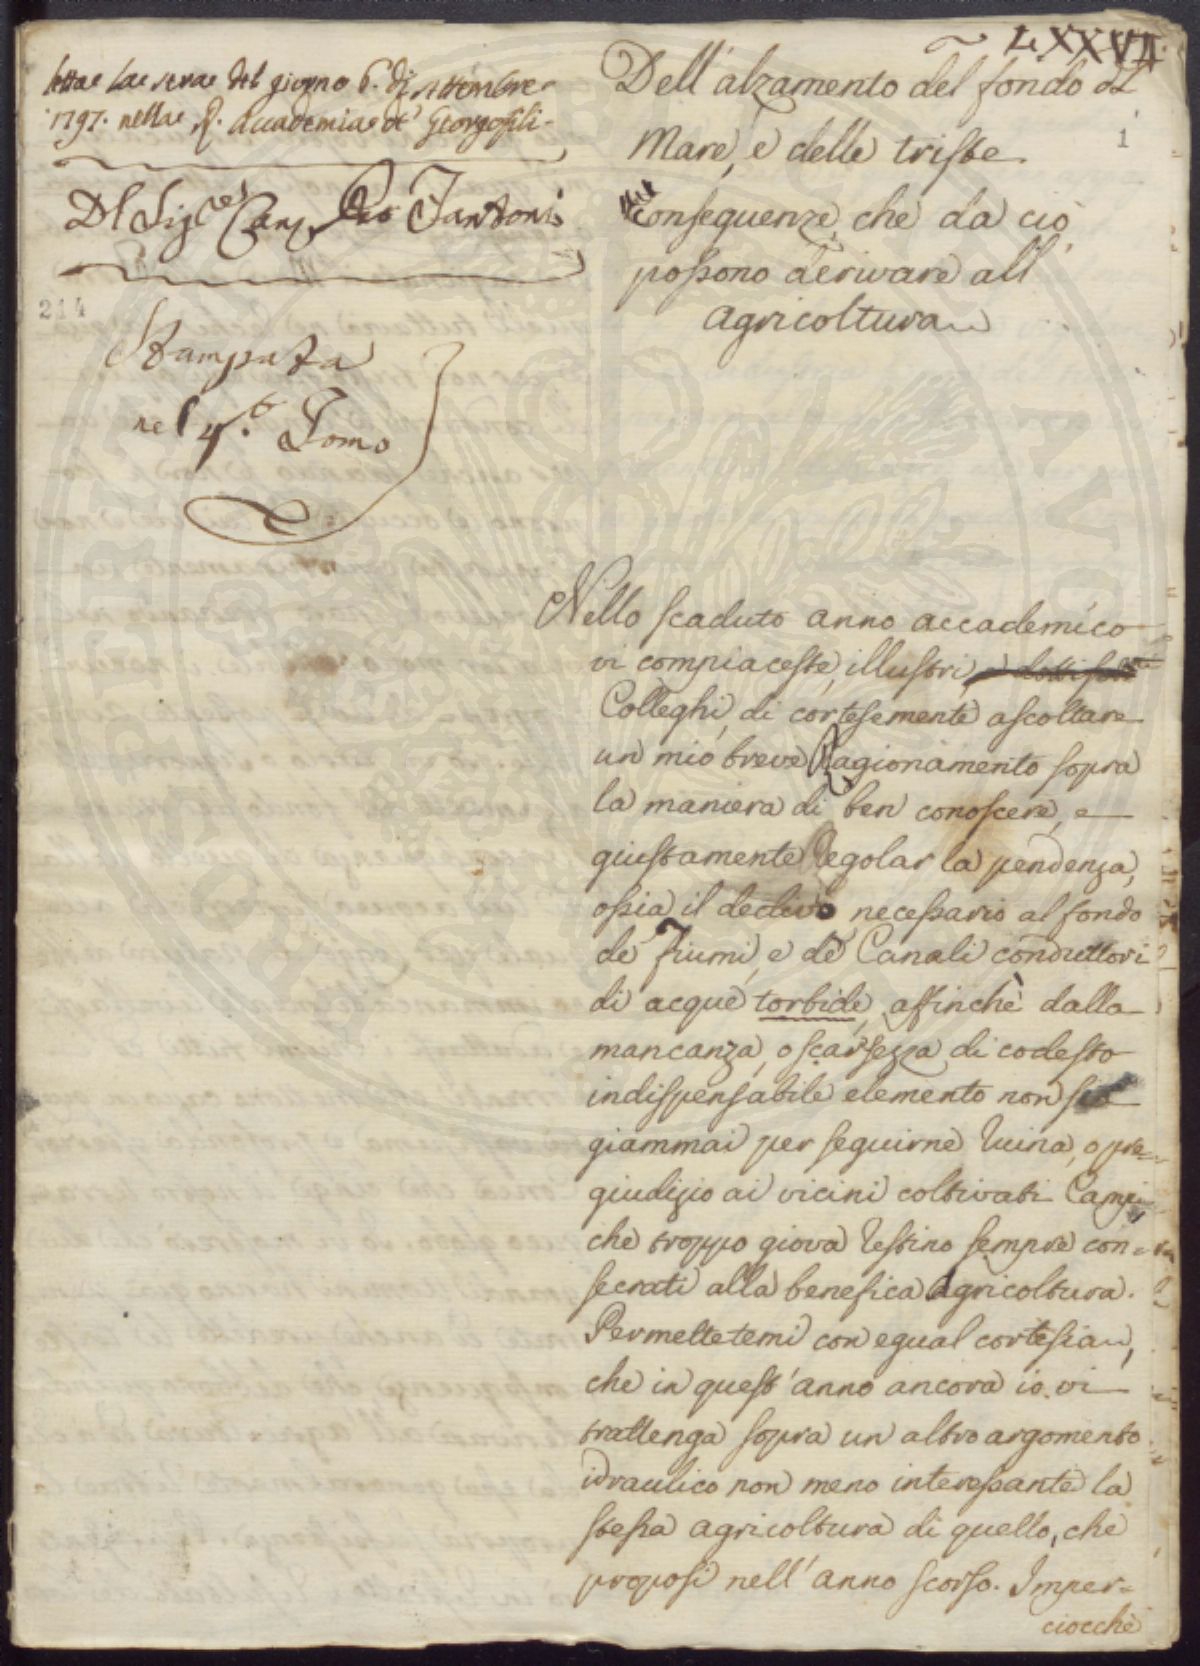 LXXVII.
1
letta la sera del giorno 6. di settembre
1797. nella R. Accademia de' Georgofili
Del Sig.re Can.co Pio Fantoni
214
Stampata
nel 4.to Tomo
Dell'alzamento del fondo del
Mare, e delle triste
conseguenze, che da ciò
possono derivare all'
agricoltura
Nello scaduto anno accademico
vi compiaceste, illustri, e dottissimi
Colleghi, di cortesemente ascoltare
un mio breve Ragionamento sopra
la maniera di ben conoscere, e
giustamente regolar la pendenza,
ossia il declivo necessario al fondo
de' Fiumi, e de' Canali conduttori
di acque torbide, affinchè dalla
mancanza, o scarsezza di codesto
indispensabile elemento non sia
giammai per seguirne ruina, o pre=
giudizio ai vicini coltivati Campi,
che troppo giova restino sempre con=
secrati alla benefica Agricoltura.
Permettetemi con egual cortesia,
che in quest'anno ancora io vi
trattenga sopra un altro argomento
idraulico non meno interessante la
stessa agricoltura di quello, che
proposi nell'anno scorso. Imper=
ciocchè